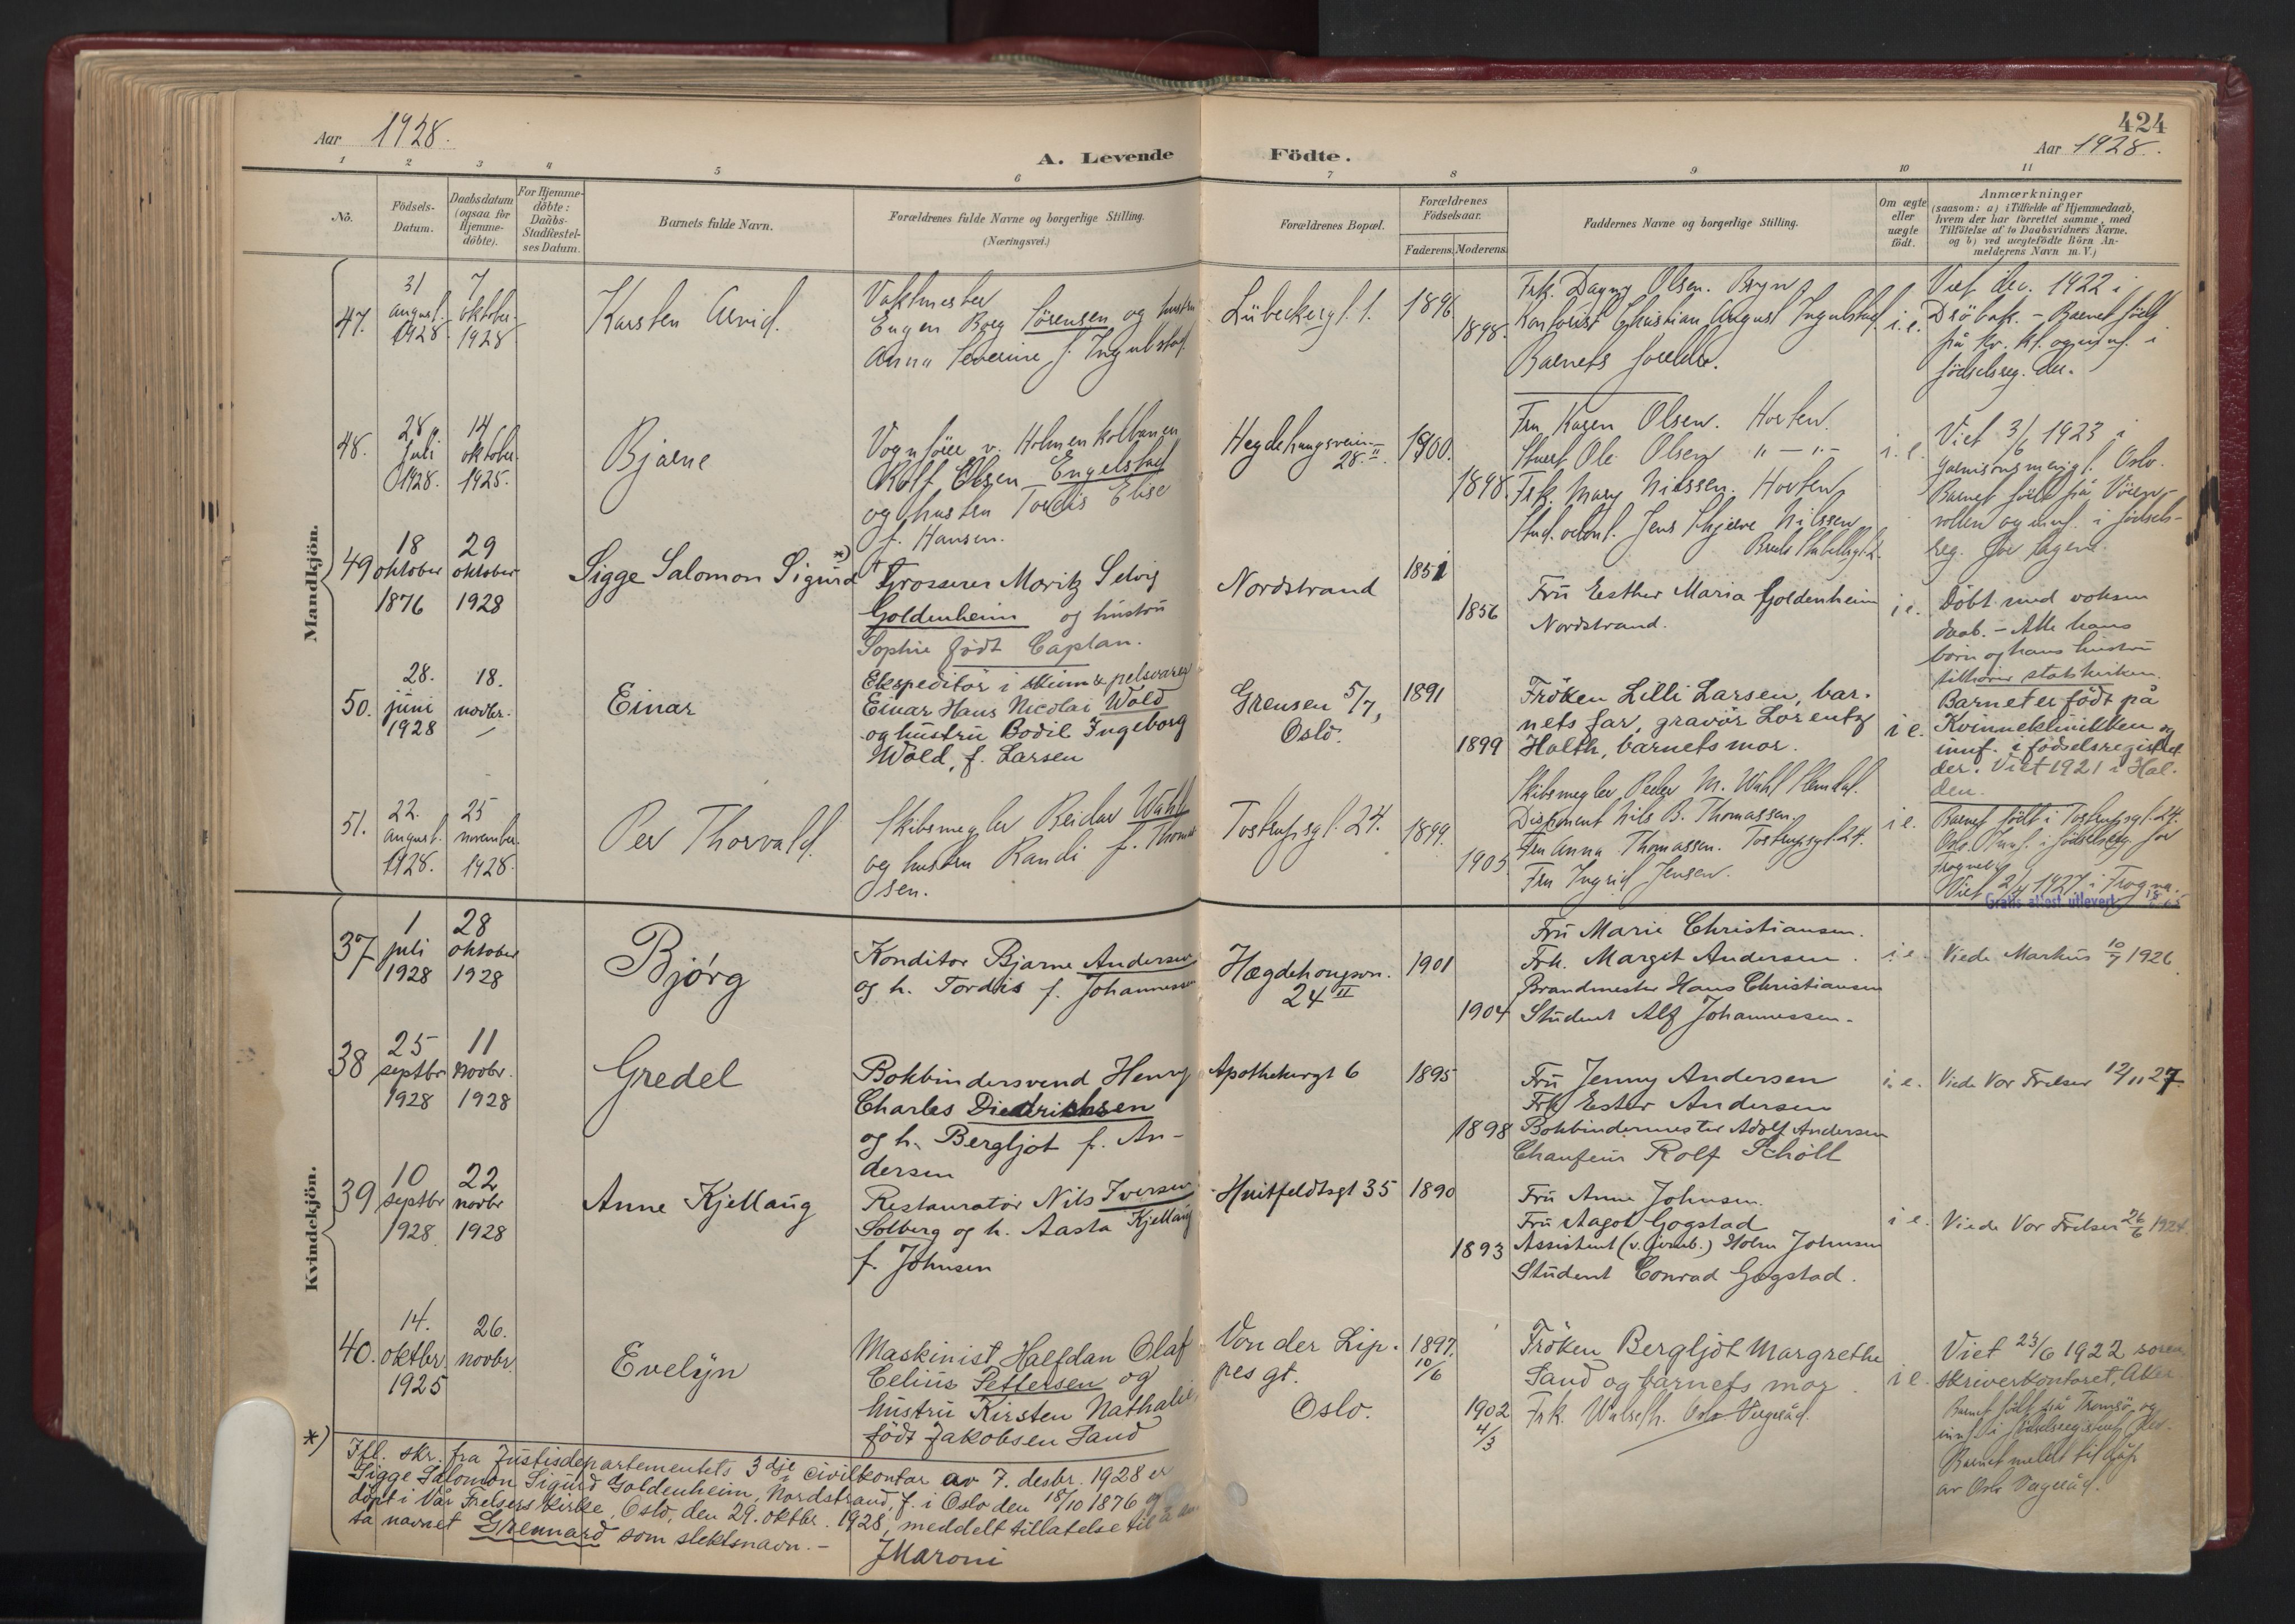 424
Aar 1928.
A. Levende Födte.
Aar 1928.
1 2 3 4 5 6 7 8 9 10 11
No.
Födsels-
Datum.
Daabsdatum
(ogsaa for
Hjemme-
döbte).
For Hjemme-
döbte:
Daabs-
Stadfestel-
ses Datum.
Barnets fulde Navn.
Forældrenes fulde Navne og borgerlige Stilling.
(Næringsvei.)
Forældrenes Bopæl.
Forældrenes
Födselsaar.
Faderens. Moderens.
Faddernes Navne og borgerlige Stilling.
Om ægte
eller
uægte
födt.
Anmærkninger
(saasom: a) i Tilfælde af Hjemmedaab,
hvem der har forrettet samme, med
Tilföielse af to Daabsvidners Navne.
og b) ved uægtefödte Börn An-
melderens Navn m. V.)
Mandkjön.
47.
31
august.
1928
7
oktober.
1928
Karsten Arvid.
Vaktmester
Eugen Borg Sörensen og hustru
Anna Severine f. Ingulstad.
Lübeckergt. 1.
1896
1898.
Frk. Dagny Olsen. Bryn
Kontorist Christian August Ingulstad
Barnets foreldre.
i. e.
Viet des. 1922 i
Dröbak. - Barnet födt
på Kv. kl. og innf. i
födselsreg. der.
48.
28
Juli
1928.
14
oktober.
1925.
Bjarne
Vognförer v. Holmenkolbanen
Rolf Olsen Engelstad
og hustru Tordis Elise
f. Hansen.
Hegdehaugsveien
28 II
1900.
1898.
Fru Karen Olsen. Horten.
Stuert Ole Olsen " - " -
Frk. Mary Nilssen. Horten
Stud. odont. Jens Nilssen
i. e.
Viet 3/6 1923 i
Garnisonsmenigh. Oslo.
Barnet födt på Vöien-
vollen og innf. i födsels-
reg. for Fagerb.
49
18
oktober
1876
29
oktober
1928
Sigge Salomon Sigurd *)
Grosserer Moritz Selvig
Goldenheim og hustru
Sophie födt Caplan.
Nordstrand
1851
1856
Fru Esther Maria Goldenheim
Nordstrand.
i e.
Döbt med voksen
daab. - Alle hans
börn og hans hustru
tilhörer statskirken.
50.
28.
juni
1928
18.
novbr.
Einar
Ekspeditör i skinn & pelsvarer
Einar Hans Nicolai Wold
og hustru Bodil Ingeborg
Wold, f. Larsen
Grensen 5/7,
Oslo.
1891
1899
Fröken Lilli Larsen, bar-
nets far, gravör Lorentz
Holth, barnets mor.
i e.
Barnet er födt på
Kvinneklinikken og
innf. i födselsregistret
der. Viet 1921 i Hal-
den.
51.
22.
august.
1928.
25
november.
1928.
Per Thorvald.
Skibsmegler Reidar Wahl
og hustru Randi f. Thomas
sen.
Tostrupsgt. 24.
1899.
1905
Skibsmegler Peder M. Wahl
Disponent Nils B. Thomassen.
Fru Anna Thomassen. Tostrupsgt. 24.
Fru Ingrid Jensen.
i e.
Barnet födt i Tostrupsgt. 24.
Oslo. Innf. i födselsreg. for
Frogner
Viet 2/4 1927 i Frogner.
Gratis attest utlevert
Kvindekjön.
37
1
juli
1928
28
oktober
1928
Bjórg
Konditor Bjarne Andersen
og h. Tordis f. Johannessen
Hægdehougsvn.
24 II
1901
1904
Fru Marie Christiansen.
Frk. Margit Andersen.
Brandmester Hans Christiansen
Student Alf Johannessen.
i e.
Viede Markus 10/7 1926.
38
25
septbr
1928
11
novbr.
1928
Gredel
Bokbindersvend Henry
Charles Diedrichsen
og h. Bergljot f. An-
dersen
Apothekergt 6
1895
1898
Fru Jenny Andersen
Frk Ester Andersen
Bokbindermester Adolf Andersen
Chaufeur Rolf Schött
i e.
Viede Vor Frelser 12/11 27.
39
10
septbr
1928
22
novbr
1928
Anne Kjellaug
Restauratör Nils Iversen
Solberg og h. Aasta Kjellaug
f. Johnsen
Huitfeldtsgt 35
1890
1893
Fru Anne Johnsen.
Fru Aagot Gogstad
Assistent (v. jernb.) Holm Johnsen
Student Conrad Gogstad.
i e.
Viede Vor Frelser 26/6 1924.
40.
14.
oktbr.
1925
26.
novbr.
Evelyn
Maskinist Halfdan Olaf
Celius Pettersen og
hustru Kirsten Nathalie,
födt Jakobsen Sand
Von der Lip-
pes gt.
Oslo.
1897.
10/6
1902
4/3
Fröken Bergljot Margrethe
Sand og barnets mor.
Frk. Oslo Vergeråd.
i e.
Viet 23/6 1922 soren-
skriverkontoret, Aker.
Barnet födt på Tromsö og
innf. i födselsregistret der.
Barnet meldt til dåp
av Oslo Vergeråd.
*)
Ifl. skr. fra Justisdepartementets 3dje civilkontor av 7. desbr. 1928 er
Sigge Salomon Sigurd Goldenheim, Nordstrand, f. i Oslo den 18/10 1876 og
döpt i Vår Frelsers kirke, Oslo, den 29. oktbr. 1928, meddelt tillatelse til å
ta navnet Grennard som slektsnavn. -
J Maroni